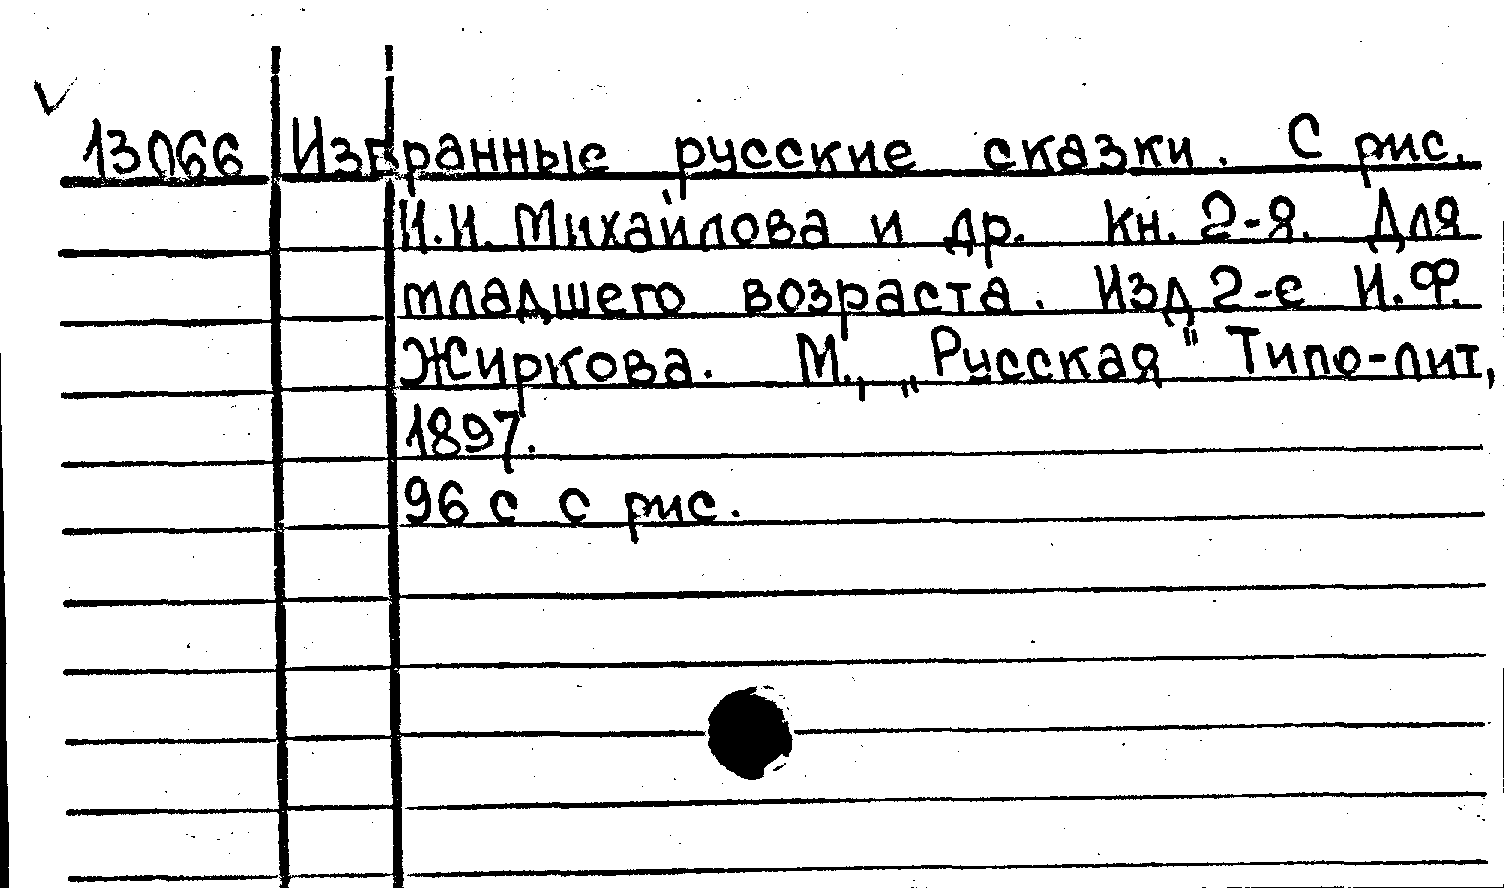 13066 Избранные русские сказки. С рис.
И.И. Михайлова и др. кн. 2-я. Для
младшего возраста. Изд 2-е И.Ф.
Жиркова. М., „Русская" Типо-лит,
1897.
96 с с рис.